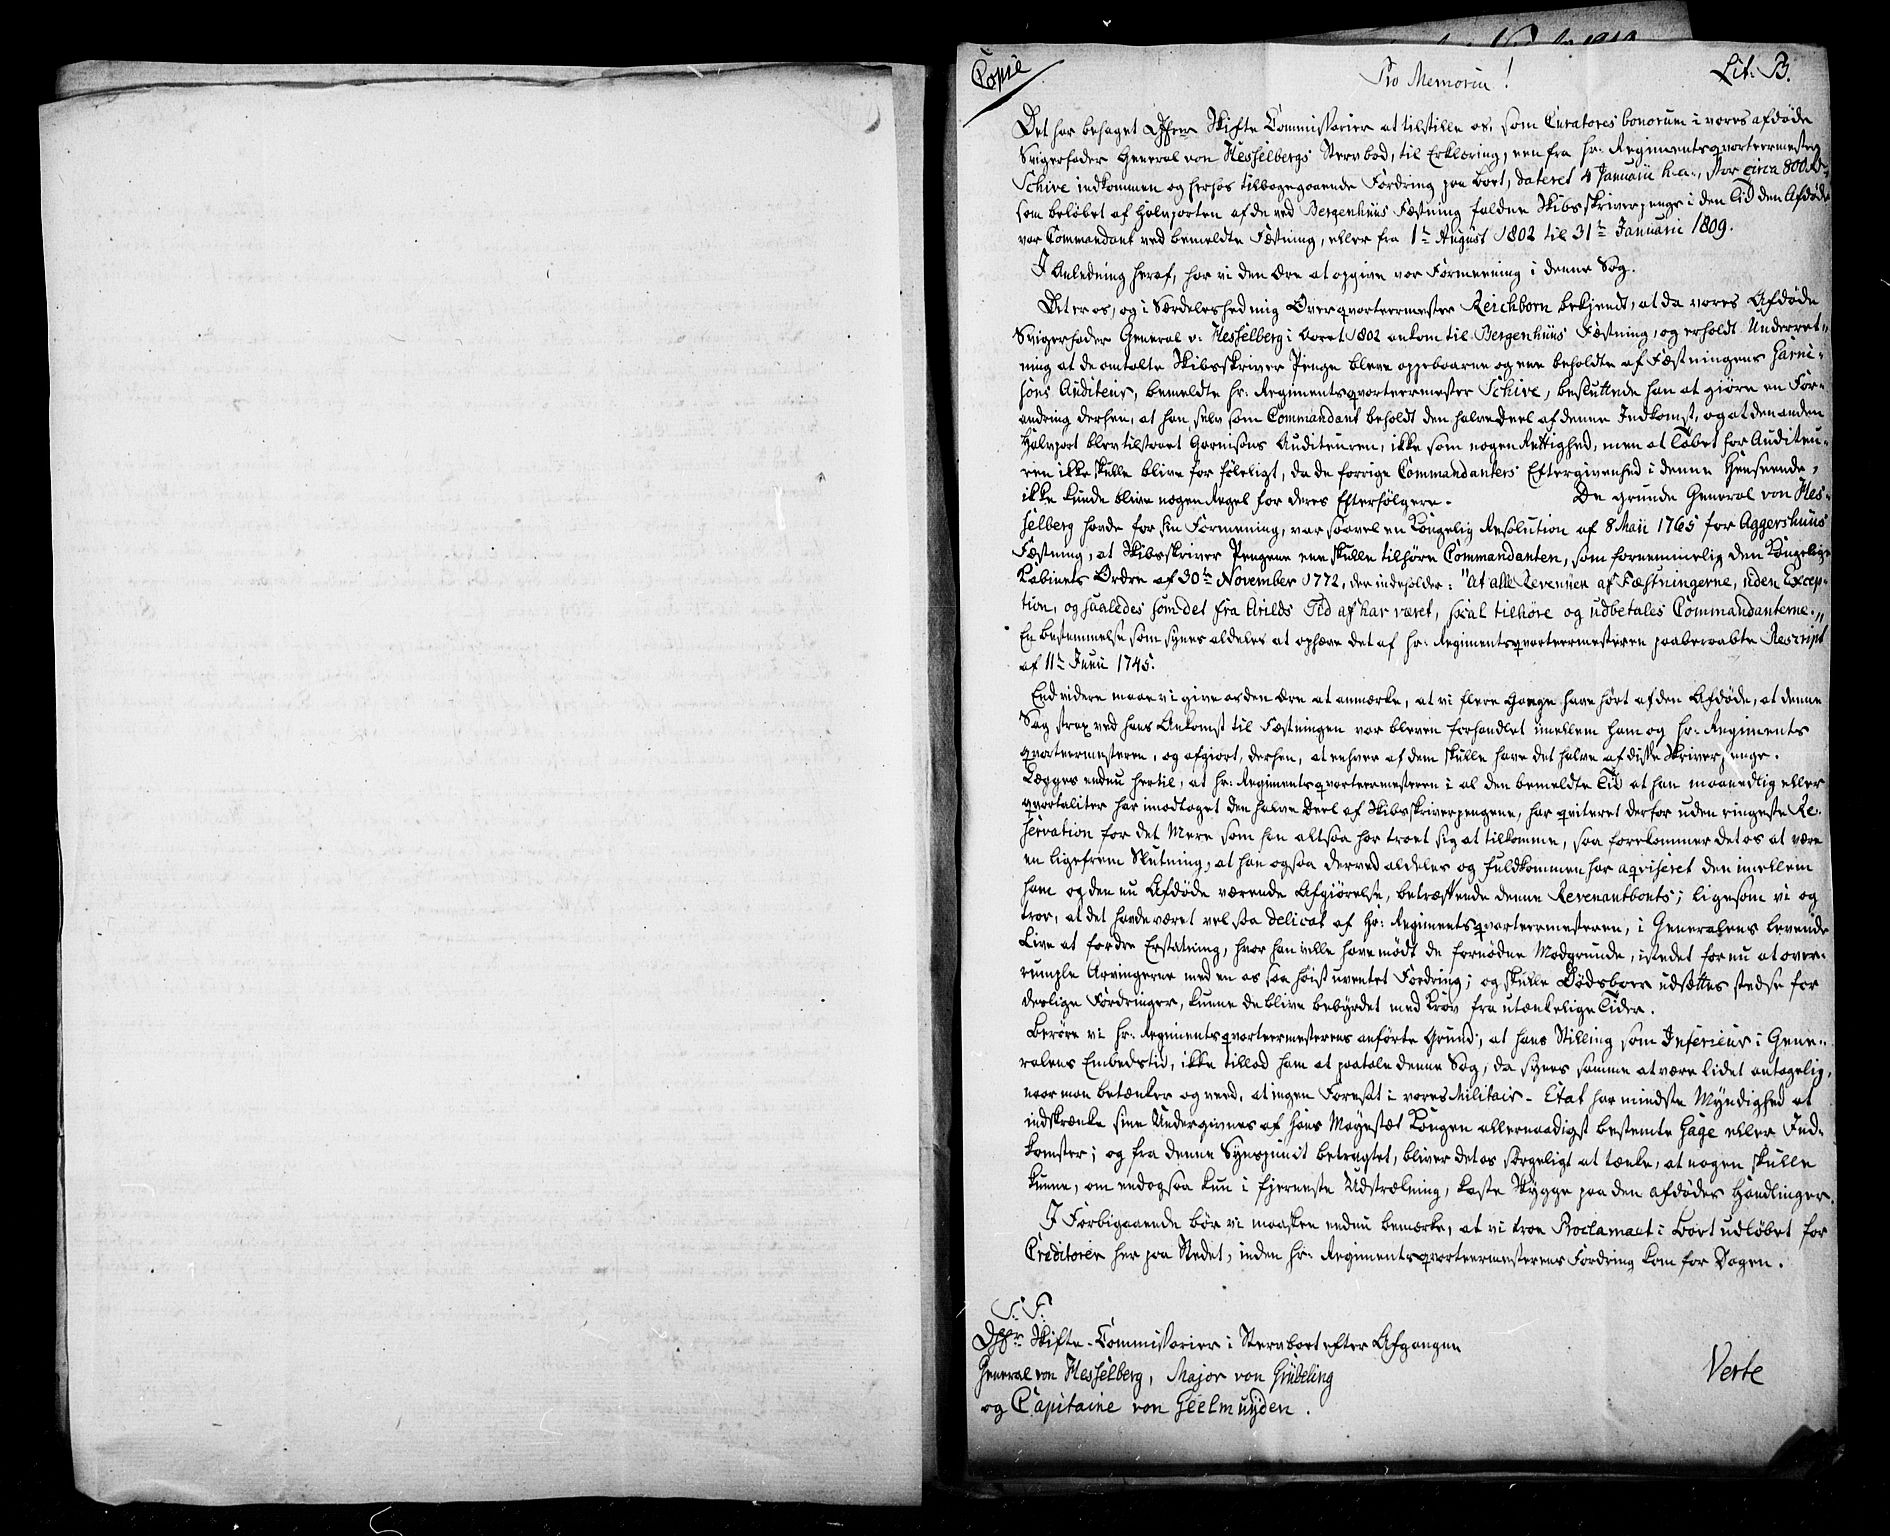 Copie
Pro Memoria!
Lit: B.
Det har behaget Dhrr Skifte Commissarier at tilstille os, som Curatores bonorum i vores afdøde
Svigerfader General von Hesselbergs Stervbod, til Erklæring, een fra Hr: Regimentsqvarteermester
Schive indkommen og herhos tilbagegaaende Fordring paa Boet, dateret 4 Januarii h.a., stor circa 800 Rd
som beløbet af Halvparten af de ved Bergenhuus Fæstning faldne Skibsskriverpenge i den Tid den Afdøde
var Commandant ved bemeldte Fæstning, eller fra 1te August 1802 til 31te Januarii 1809.
I Anledning heraf, har vi den Ære at opgive vor Formeening i denne Sag.
Det er os, og i Særdeleshed mig Overqvarteermester Reichborn bekjendt, at da vores Afdøde
Svigerfader General v: Hesselberg i Aaret 1802 ankom til Bergenhuus Fæstning, og erholdt Underret-
ning at de omtalte Skibsskriver Penge bleve oppebaarne og ene beholdte af Fæstningens Garni-
sons Auditeur, bemeldte Hr: Regimentsqvarteermester Schive, besluttede han at giøre en For-
andring derhen, at han selv som Commandant beholdt den halve Deel af denne Indkomst, og at den anden
Halvpart blev tilstaaet Garnisons Auditeuren, ikke som nogen Rettighed, men at Tabet for Auditeu-
ren ikke skulle blive for føleligt, da de forrige Commandanters Eftergivenhed i denne Henseende,
ikke kunde blive nogen Regel for deres Efterfølgere. De Grunde General von Hes-
selberg havde for sin Formening, var saavel en Kongelig Resolution af 8 Maii 1765 for Aggershuus
Fæstning, at Skibsskriver Pengene ene skulle tilhøre Commandanten, som fornemmelig den Kongelige
Kabinets Ordre af 30te November 1772, der indeholder: "At alle Revenüer af Fæstningerne, uden Excep-
tion, og saaledes som det fra Arilds Tid af har været, skal tilhøre og udbetales Commandanterne."
En bestemmelse som synes aldeles at ophæve det af Hr: Regimentsqvarteermesteren paaberaabte Rescript
af 11te Junii 1745.
End videre maae vi give os den Ære at anmærke, at vi flere Gange have hørt af den Afdøde, at denne
Sag strax ved hans Ankomst til Fæstningen var bleven forhandlet imellem ham og Hr: Regiments
qvarteermesteren, og afgiort, derhen, at enhver af dem skulle have det halve af disse Skriverpenge.
Lægges endnu hertil, at Hr: Regimentsqvarteermesteren i al den bemeldte Tid at han maanedlig eller
qvartaliter har imodtaget den halve Deel af Skibsskriverpengene, har qviteret derfor uden ringeste Re-
servation for det Mere som han altsaa har troet sig at tilkomme, saa forekommer det os at være
en ligefrem Slutning, at han ogsaa derved aldeles og fuldkommen har aqviseret den imellem
ham og den nu Afdøde værende Afgiørelse, betræffende denne Revenantbonts; ligesom vi og
troe, at det havde været vel saa delicat af Hr: Regimentsqvarteermesteren, i Generalens levende
Live at fordre Erstatning, hvor han ville have mødt de fornødne Modgrunde, istedet for nu at over-
rumple Arvingerne med en os saa høist uventet Fordring; og skulle Dødsboer udsættes stedse for
deslige Fordringer, kunne de blive bebyrdet med Krav fra utænkelige Tider.
Berøre vi Hr: Regimentsqvarteermesterens anførte Grund, at hans Stilling som Inferieur i Gene-
ralens Embedstid, ikke tillod ham at paatale denne Sag, da synes samme at være lidet antagelig,
naar man betænker og veed, at ingen Foresat i vores Militair-Etat har mindste Myndighed at
indskrænke sine Undergivnes af Hans Mayestæt Kongen allernaadigst bestemte Gage eller Ind-
komster; og fra denne Synspunct betragtet, bliver det os sørgeligt at tænke, at nogen skulle
kunne, om endogsaa kun i fjerneste Udstrækning, kaste Skygge paa den afdødes Handlinger.
I Forbigaaende bør vi maaskee endnu bemærke, at vi troe Proclamaet i Boet udløbet for
Creditorer her paa Stedet, inden Hr: Regimentsqvarteermesterens Fordring kom for Dagen.
S: T:
Dhrr Skifte-Commissarier i Stervboet efter Afgangne
General von Hesselberg, Major von Grübeling
og Capitaine von Geelmuyden.
Verte